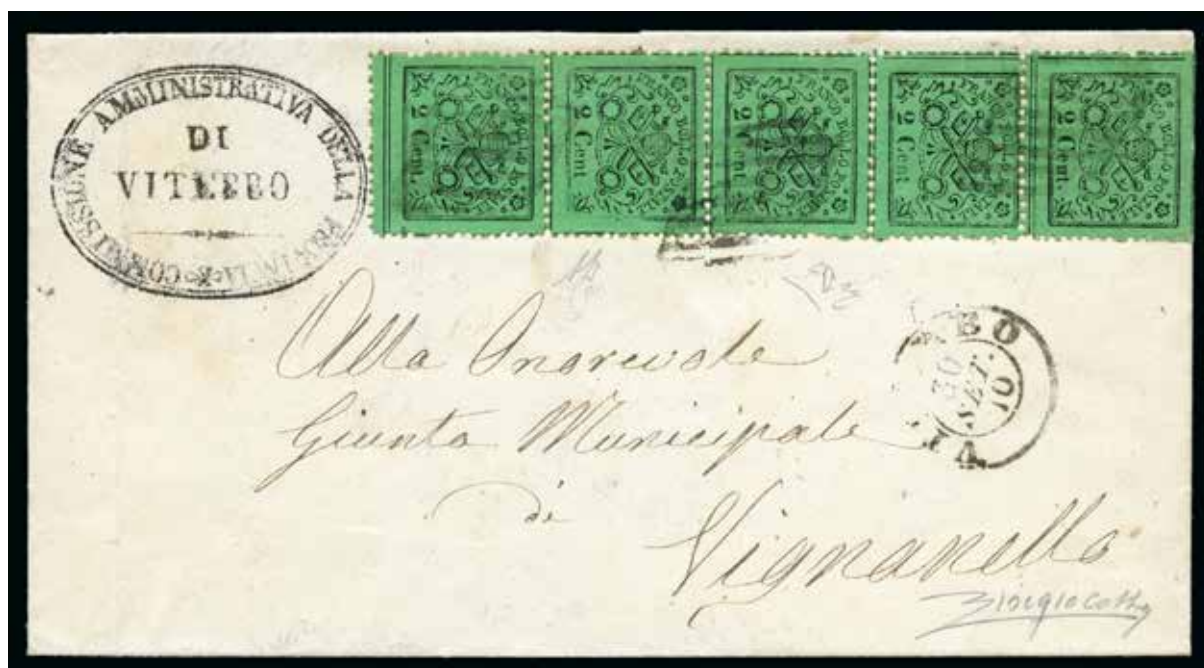 COMMISSIONE AMMINISTRATIVA DELLA PROVINCIA
DI
VITERBO
2 Cent.
2 Cent.
2 Cent.
2 Cent.
2 Cent.
BO
30
SET.
70
VI
Alla Onorevole
Giunta Municipale
di
Vignanello